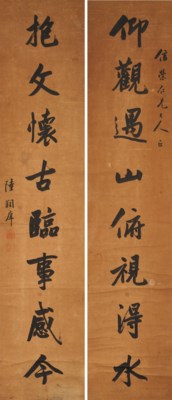 兄大人
仰觀遇山俯視得水
抱文懷古臨事感今
陸潤庠